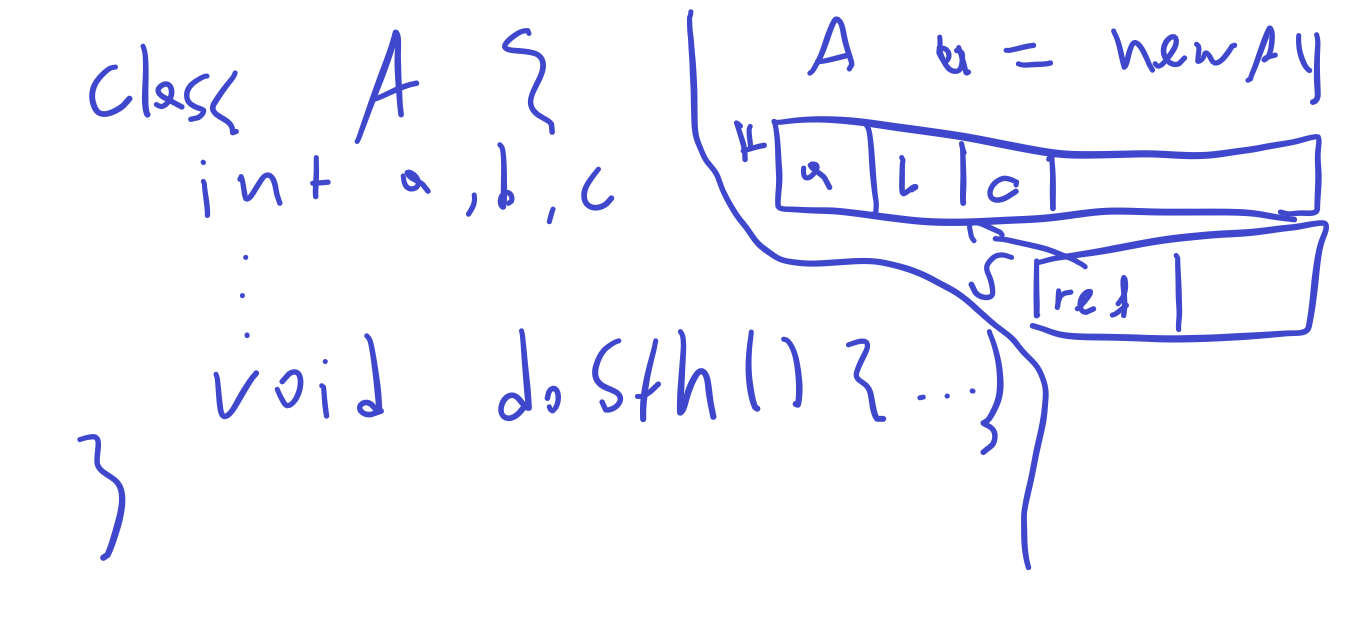 class A {
int a, b, c
.
.
.
void dosth() {...}
}
A a = new A()
H
a b c
S
ref